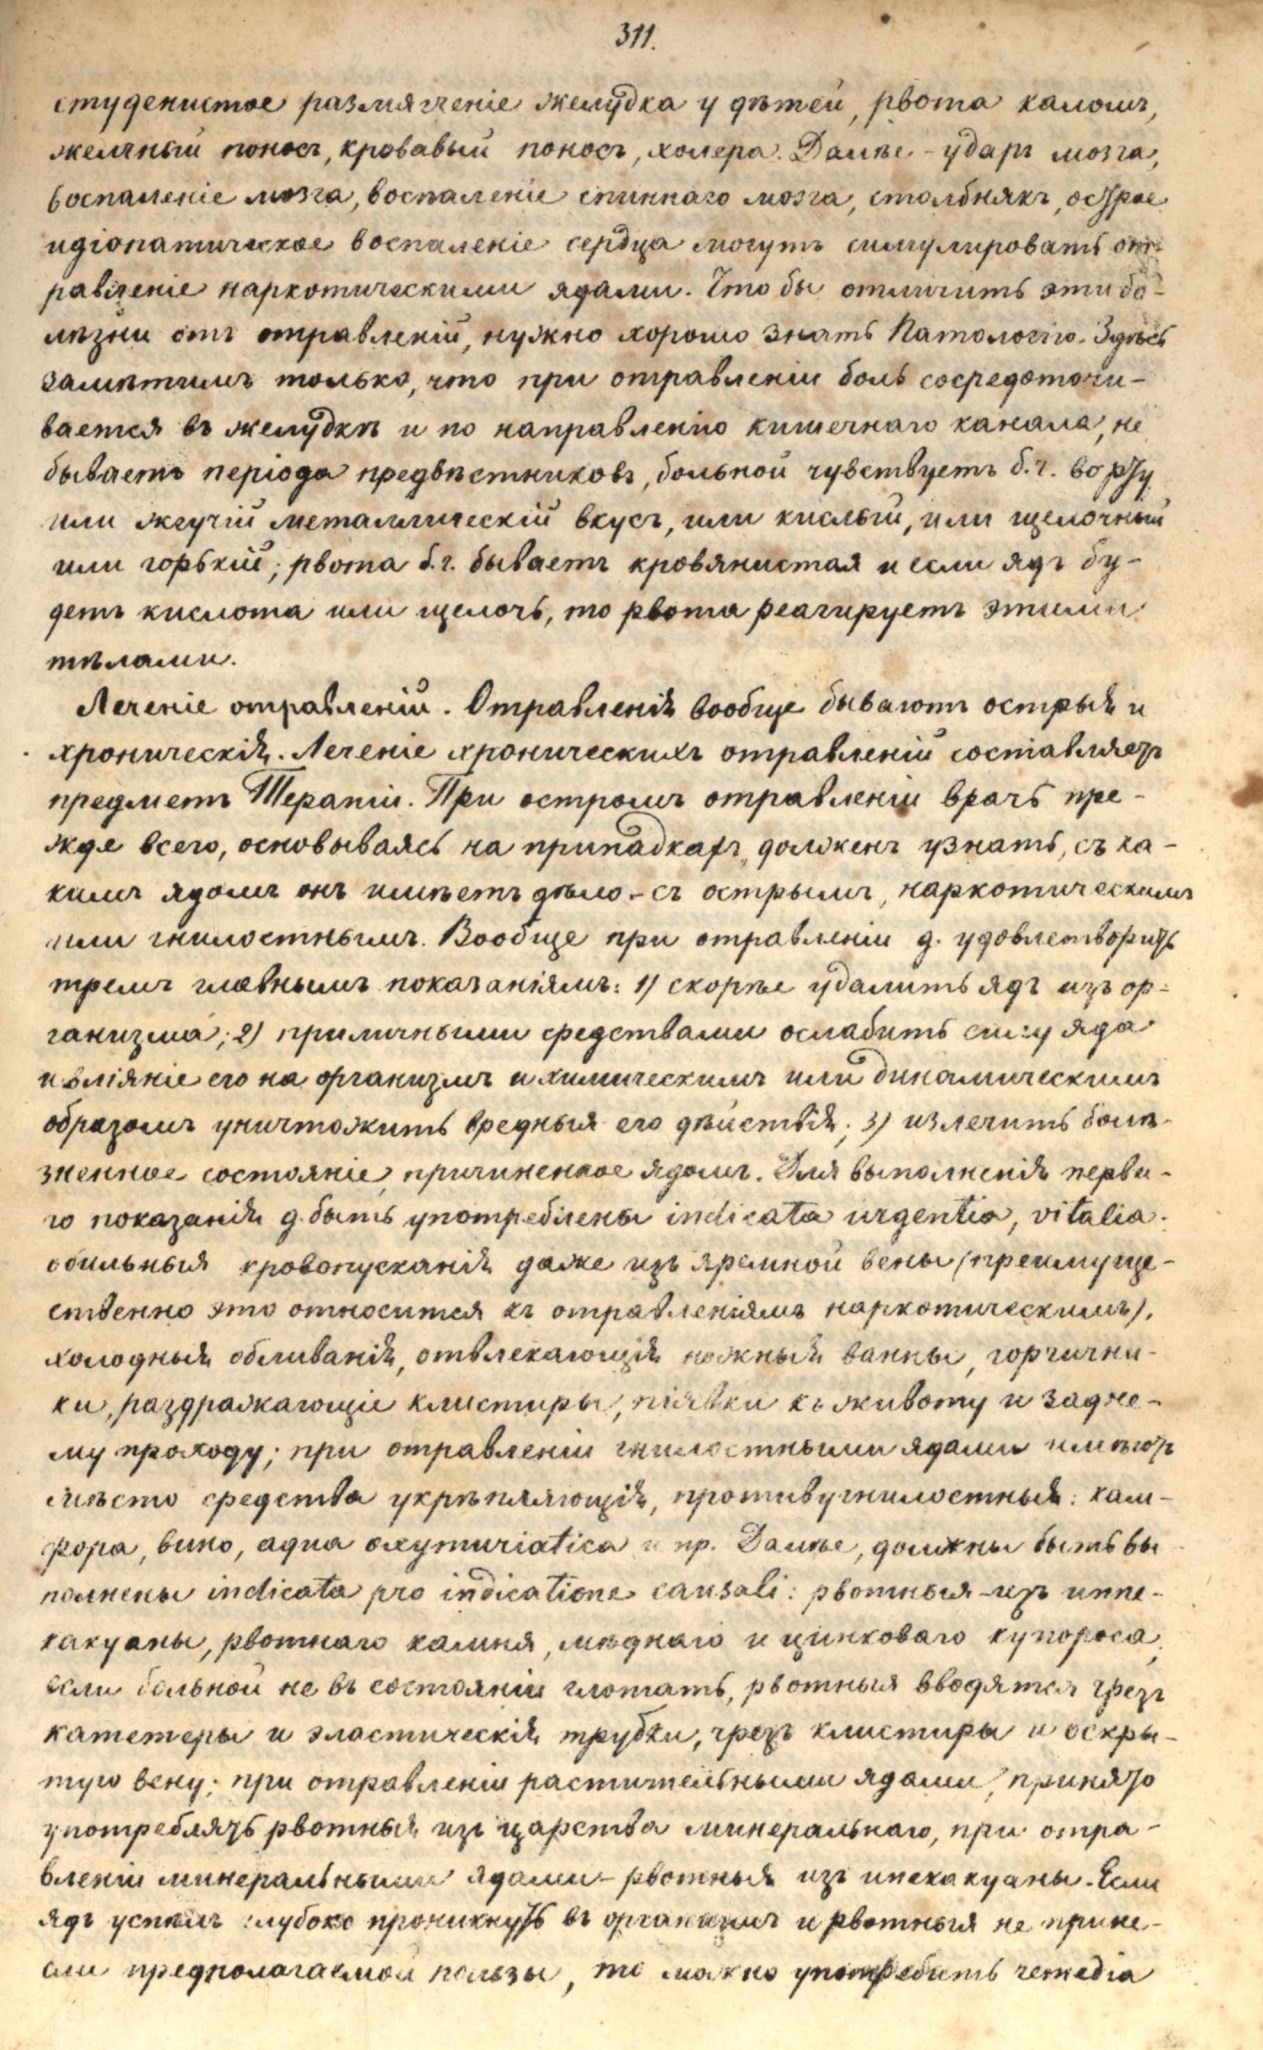 311.
студенистое размягченіе желудка у дѣтей, рвота каломъ,
желчный поносъ, кровавый поносъ, холера. Далѣе – ударъ мозга,
воспаленіе мозга, воспаленіе спиннаго мозга, столбнякъ, острое
идіопатическое воспаленіе сердца могутъ симулировать от-
равленіе наркотическими ядами. Что бы отличить эти бо-
лѣзни отъ отравленій, нужно хорошо знать Патологію. Здѣсь
замѣтимъ только, что при отравленіи боль сосредоточи-
вается въ желудкѣ и по направленію кишечнаго канала, не
бываетъ періода предвѣстниковъ, больной чувствуетъ б. ч. во рту
или жгучій металлическій вкусъ, или кислый, или щелочный
или горькій; рвота б. ч. бываетъ кровянистая и если ядъ бу-
детъ кислота или щелочь, то рвота реагируетъ этими
тѣлами.
Леченіе отравленій. Отравленія вообще бываютъ острыя и
хроническія. Леченіе хроническихъ отравленій составляетъ
предметъ Терапіи. При остромъ отравленіи врачъ пре-
жде всего, основываясь на припадкахъ, долженъ узнать, съ ка-
кимъ ядомъ онъ имѣетъ дѣло – съ острымъ, наркотическимъ
или гнилостнымъ. Вообще при отравленіи д. удовлетворить
тремъ главнымъ показаніямъ: 1) скорѣе удалить ядъ изъ ор-
ганизма; 2) приличными средствами ослабить силу яда
и вліяніе его на организмъ и химическимъ или динамическимъ
образомъ уничтожить вредныя его дѣйствія; 3) излечить болѣ-
зненное состояніе, причиненное ядомъ. Для выполненія перва-
го показанія д. быть употреблены indicata urgentia, vitalia:
обильныя кровопусканія даже изъ яремной вены (преимуще-
ственно это относится къ отравленіямъ наркотическимъ),
холодныя обливанія, отвлекающія ножныя ванны, горчични-
ки, раздражающіе клистиры, піявки къ животу и задне-
му проходу; при отравленіи гнилостными ядами имѣютъ
мѣсто средства укрѣпляющія, противугнилостныя: кам-
фора, вино, aqua oxymuriatica и пр. Далѣе, должны быть вы-
полнены indicata pro indicatione causali: рвотныя – изъ иппе-
какуаны, рвотнаго камня, мѣднаго и цинковаго купороса;
если больной не въ состояніи глотать, рвотныя вводятся чрезъ
катетеры и эластическія трубки, чрезъ клистиры и вскры-
тую вену; при отравленіи растительными ядами, принято
употреблять рвотныя изъ царства минеральнаго, при отра-
вленіи минеральными ядами – рвотныя изъ ипекакуаны. Если
ядъ успѣлъ глубоко проникнуть въ организмъ и рвотныя не прине-
сли предполагаемой пользы, то можно употребить remedia